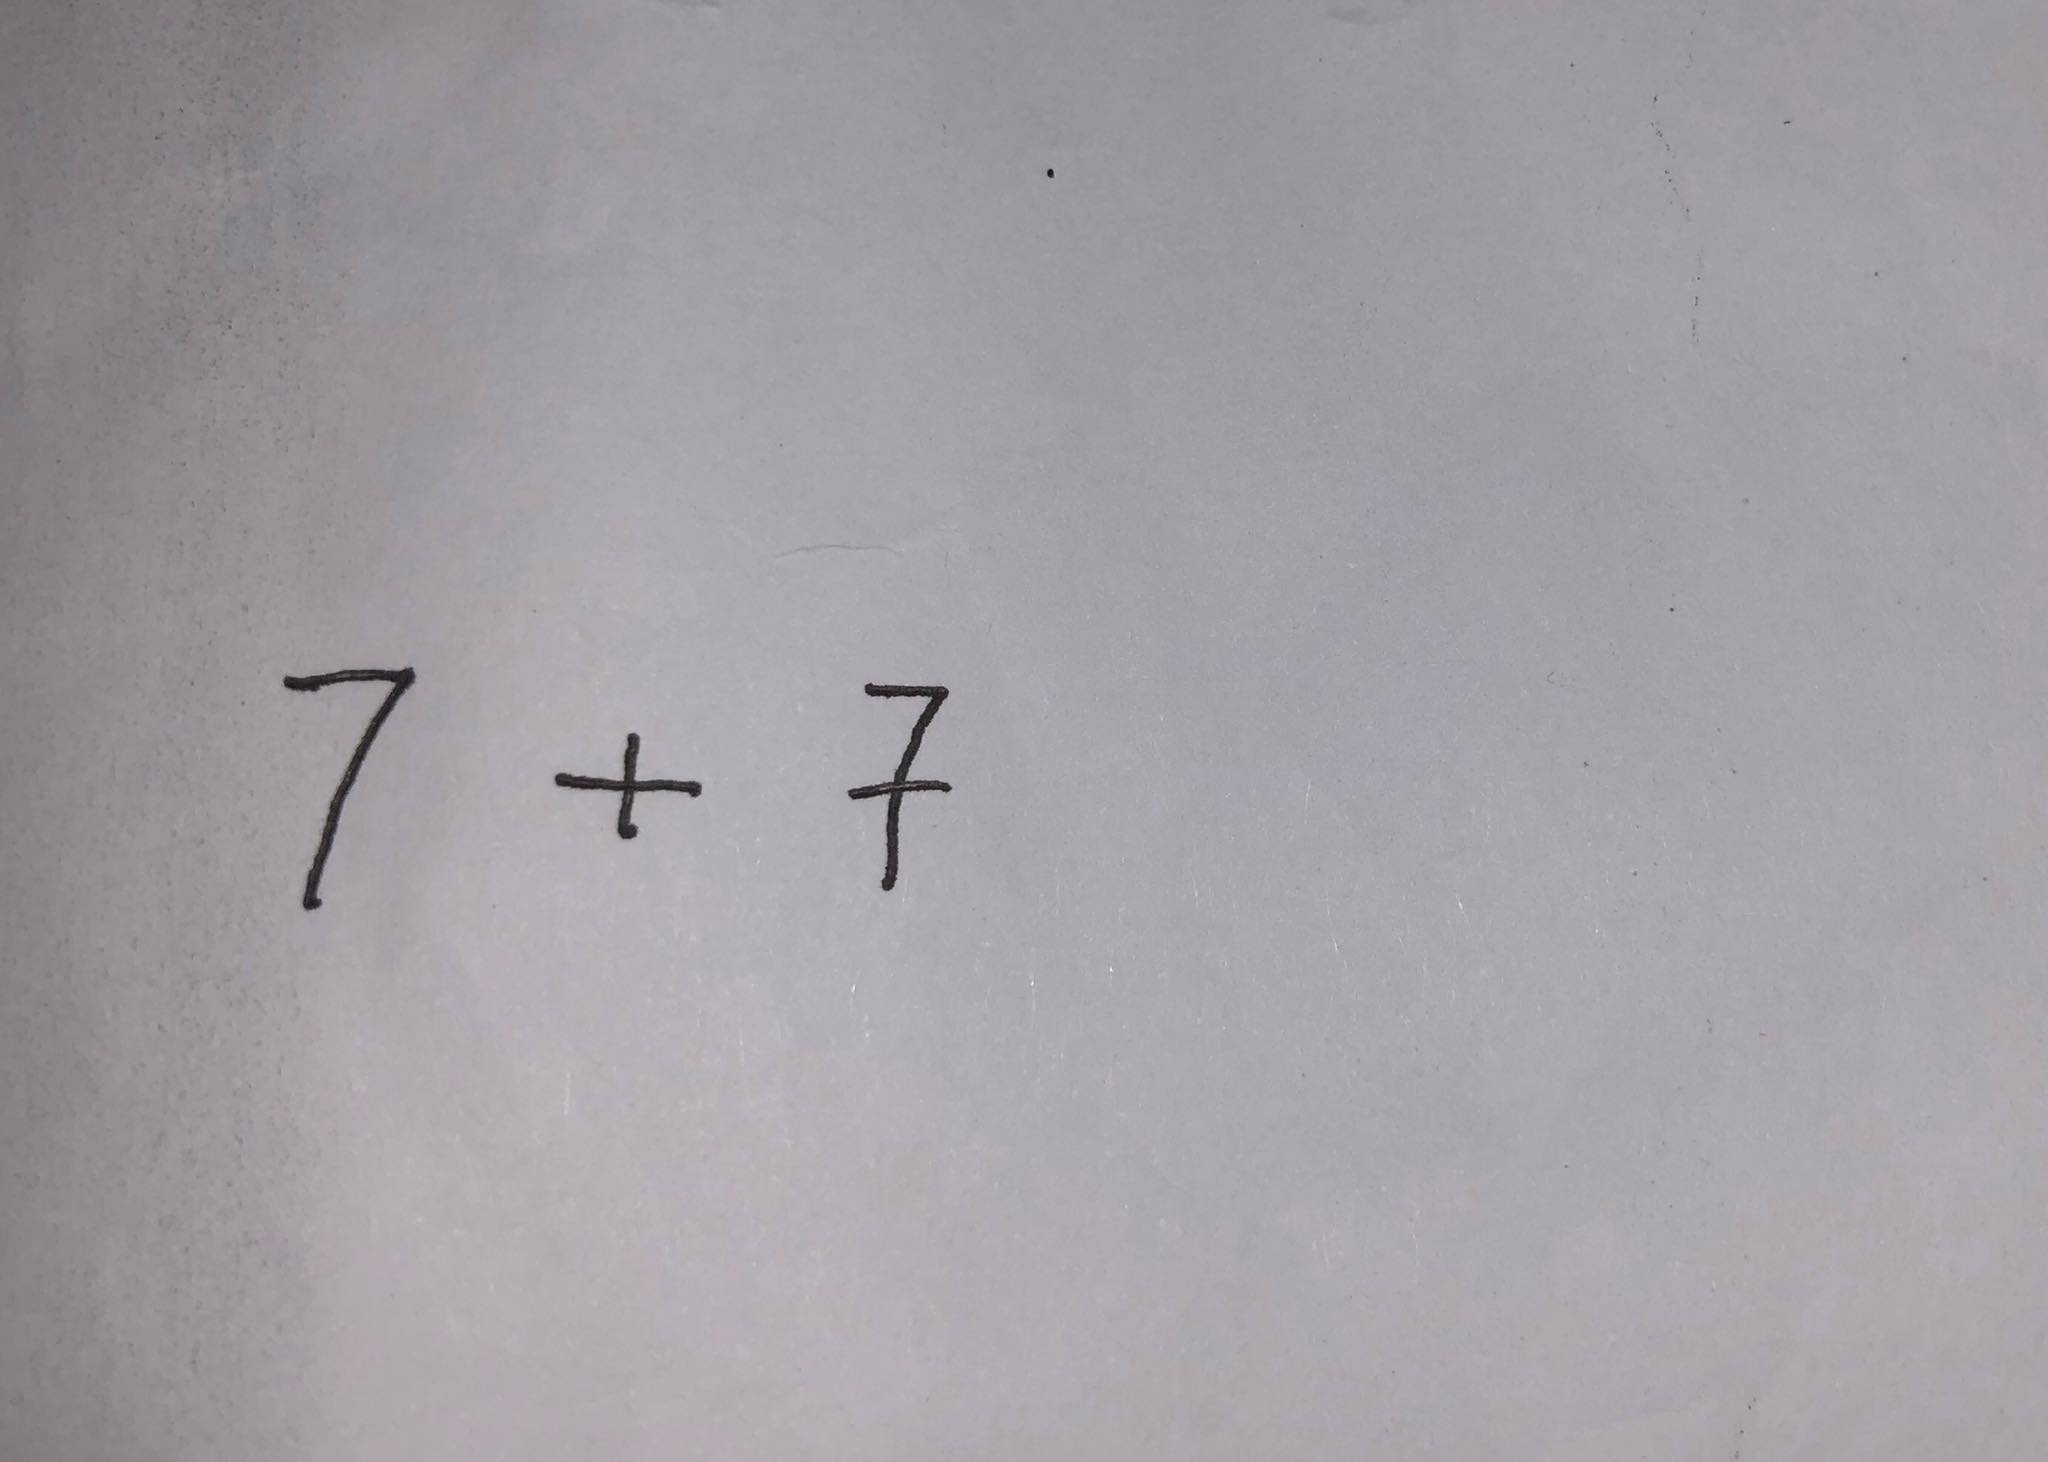 7 + 7